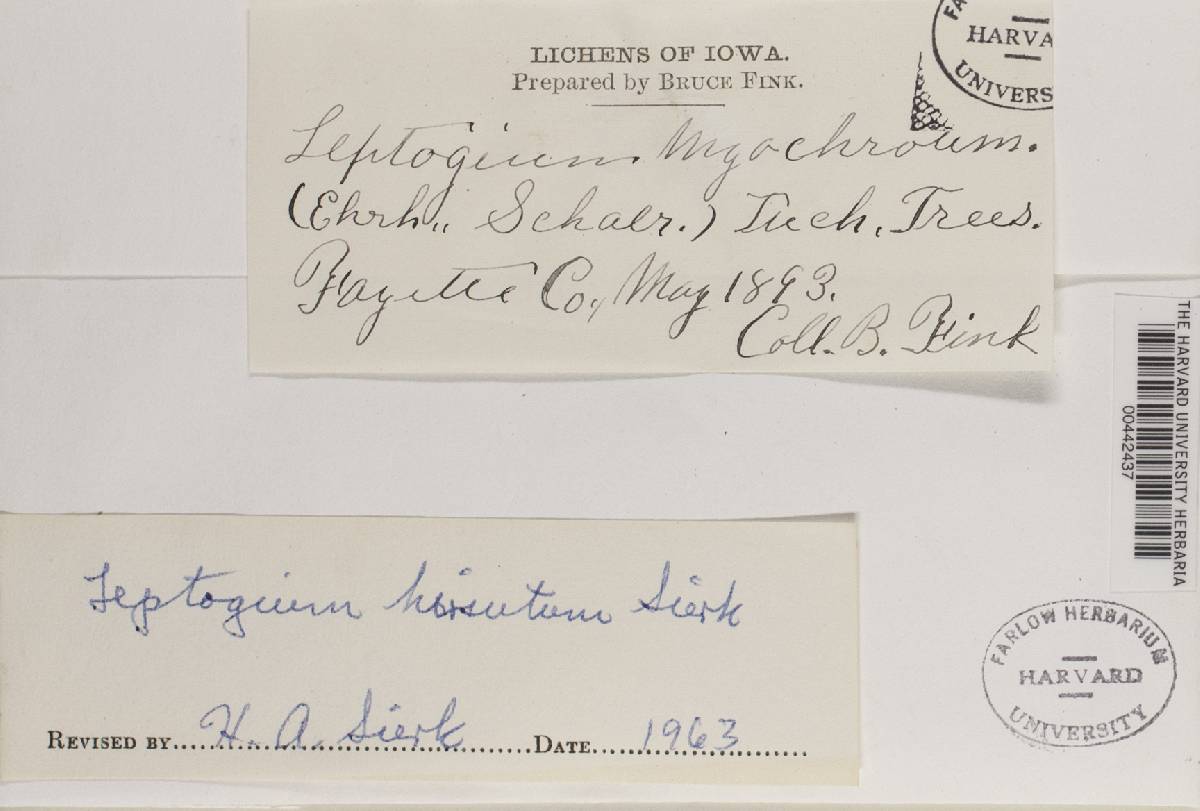 LICHENS OF IOWA.
Prepared by BRUCE FINK.
Leptogium Myochroum.
(Ehrh., Schaer.) Tuck. Trees.
Fayette Co., May 1893.
Coll. B. Fink
FA
HARVA
UNIVERS
THE HARVARD UNIVERSITY HERBARIA
00442437
Leptogium hirsutum Sierk
REVISED BY H. A. Sierk DATE 1963
FARLOW HERBARIUM
HARVARD
UNIVERSITY